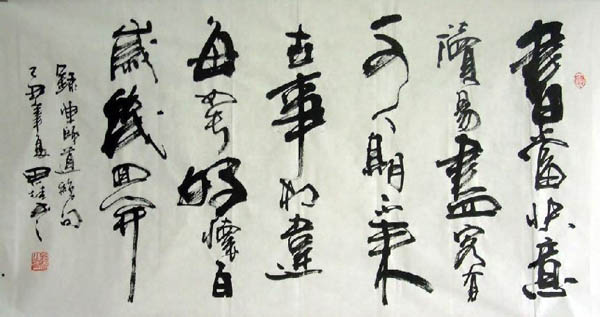 書當快意
讀易盡客有
可人期不來
世事相違
每如此好懷百
歲幾回開
錄陳師道絕句
己丑年夏